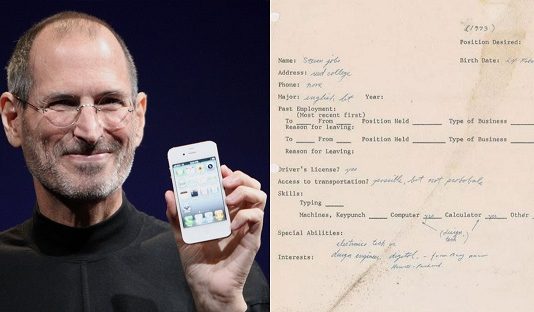 (1973)
Position Desired:
Name: Steven jobs Birth Date:
Address: reed college
Phone: none
Major: english lit Year:
Past Employment:
(Most recent first)
To From Position Held Type of Business
Reason for leaving:
To From Position Held Type of Business
Reason for Leaving:
Driver's License? yes
Access to transportation? possible, but not probable
Skills:
Typing
Machines, Keypunch Computer yes Calculator yes Other
(design, tech)
Special Abilities:
electronics tech or
Interests: design engineer. digital. - from Bay near
Hewitt-Packard